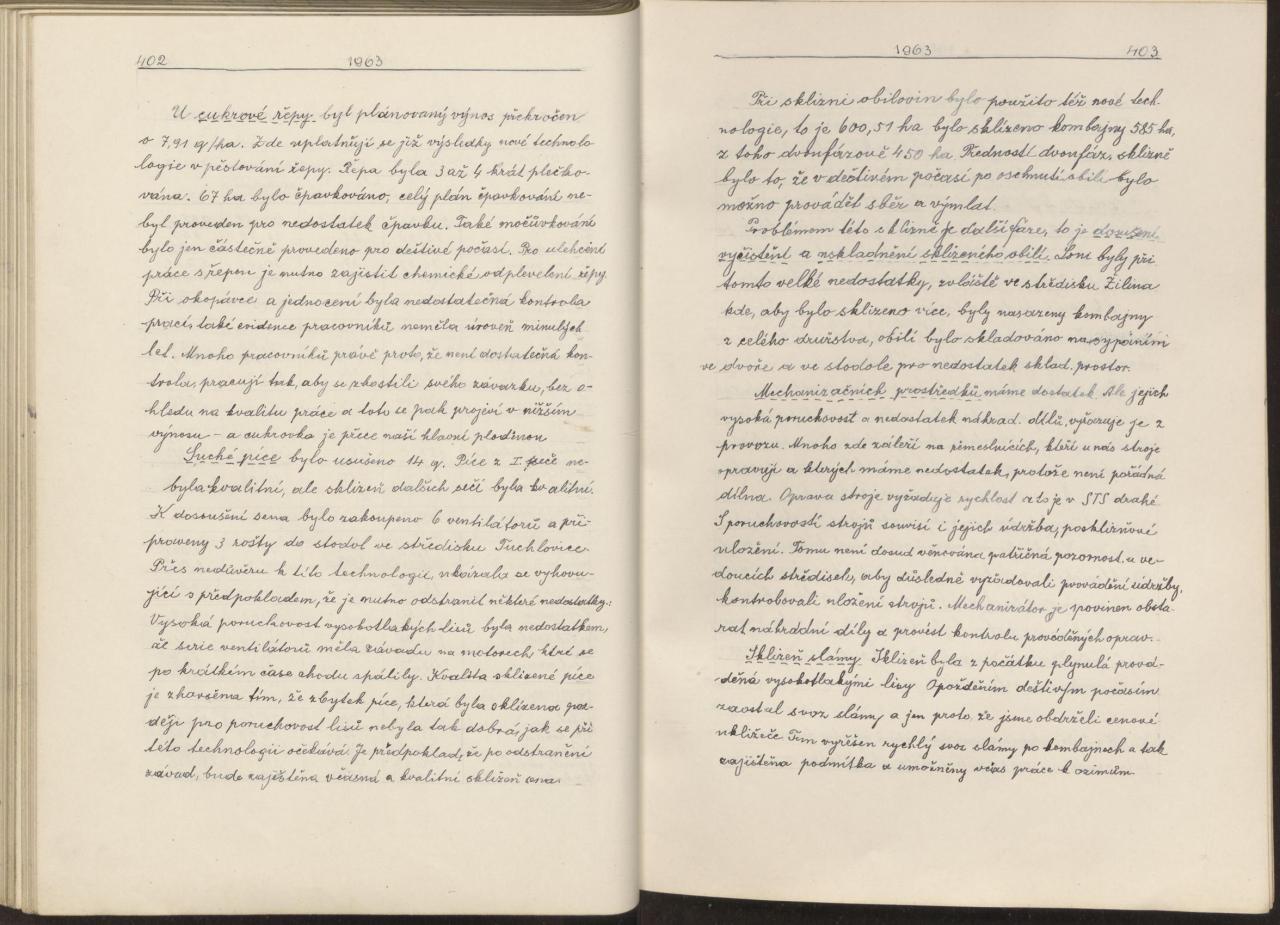 402 1963
U cukrové řepy byl plánovaný výnos překročen
o 7,91 q/ha. Zde uplatňují se již výsledky nové technolo-
logie v pěstování řepy. Řepa byla 3 až 4 krát plečko-
vána. 67 ha bylo čpavkováno, celý plán čpavkování ne-
byl proveden pro nedostatek čpavku. Také močůvkování
bylo jen částečně provedeno pro deštivé počasí. Pro ulehčení
práce s řepou je nutno zajistit chemické odplevelení řepy.
Při okopávce a jednocení byla nedostatečná kontrola
prací, také evidence pracovníků neměla úroveň minulých
let. Mnoho pracovníků právě proto, že není dostatečná kon-
trola, pracují tak, aby se zhostili svého závazku, bez o-
hledu na kvalitu práce a toto se pak projeví v nižším
výnosu – a cukrovka je přece naší hlavní plodinou
Suché píce bylo usušeno 14 q. Píce z I. seče ne-
byla kvalitní, ale sklizeň dalších sečí byla kvalitní.
K dosoušení sena bylo zakoupeno 6 ventilátorů a při-
praveny 3 rošty do stodol ve středisku Tuchlovice.
Přes nedůvěru k této technologii, ukázala se vyhovu-
jící s předpokladem, že je nutno odstranit některé nedostatky:
Vysoká poruchovost vysokotlakých lisů byla nedostatkem,
ál serie ventilátorů měla závadu na motorech, které se
po krátkém čase chodu spálily. Kvalita sklizené píce
je zhoršena tím, že zbytek píce, která byla sklizena poz-
ději pro poruchovost lisů nebyla tak dobrá, jak se při
této technologii očekává. Je předpoklad, že po odstranění
závad, bude zajištěna včasná a kvalitní sklizeň sena.
1963 403
Při sklizni obilovin bylo použito též nové tech-
nologie, to je 600,51 ha bylo sklizeno kombajny 585 ha,
z toho dvoufázově 450 ha Předností dvoufáz. sklizně
bylo to, že v deštivém počasí po oschnutí obilí bylo
možno provádět sběr a výmlat.
Problémem této sklizně je další fáze, to je dosušení,
vyčištění a uskladnění sklizeného obilí. Loni byly při
tomto velké nedostatky, zvláště ve středisku Žilina
kde, aby bylo sklizeno více, byly nasazeny kombajny
z celého družstva, obilí bylo skladováno na sypáními
ve dvoře a ve stodole pro nedostatek sklad. prostor.
Mechanizačních prostředků máme dostatek. Ale jejich
vysoká poruchovost a nedostatek náhrad. dílů, vyřazuje je z
provozu. Mnoho zde záleží na řemeslnících, kteří u nás stroje
opravují a kterých máme nedostatek, protože není pořádná
dílna. Oprava stroje vyžaduje rychlost a to je v STS drahé.
S poruchovostí strojů souvisí i jejich údržba, posklizňové
uložení. Tomu není dosud věnována patřičná pozornost u ve-
doucích středisek, aby důsledně vyžadovali provádění údržby,
kontrolovali uložení strojů. Mechanizátor je povinen obsta-
rat náhradní díly a provést kontrolu prováděných oprav.
Sklizeň slámy. Sklizeň byla z počátku plynulá prová-
děná vysokotlakými lisy. Opožděním deštivým počasím
zaostal svoz slámy a jen proto, že jsme obdrželi cenové
uklizeče. Tím vyřešen rychlý svoz slámy po kombajnech a tak
zajištěna podmítka a umožněny včas práce k ozimům.